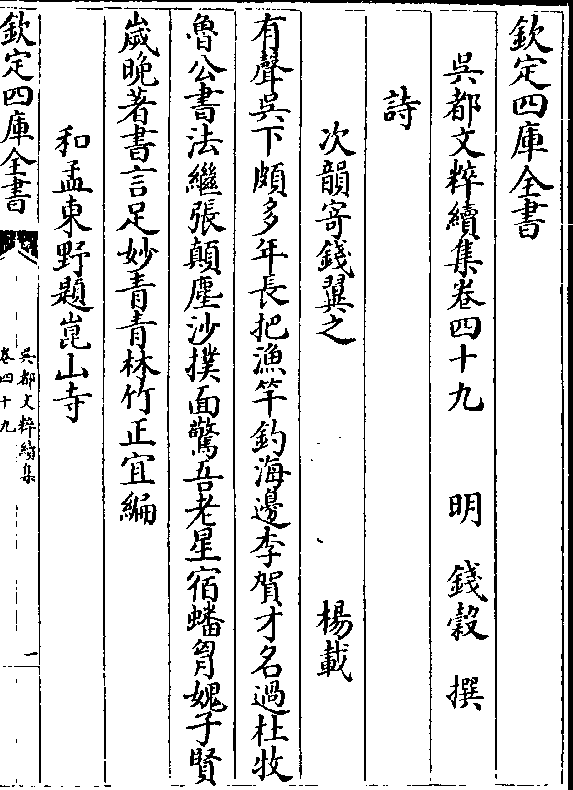 欽定四庫全書
吳都文粹續集卷四十九　明　錢榖　撰
詩
次韻寄錢翼之　楊載
有聲吳下頗多年長把漁竿釣海邊李賀才名過杜牧
魯公書法繼張顛塵沙撲面驚吾老星宿蟠胷媿子賢
嵗晚著書言足妙青青林竹正宜編
和孟東野題崑山寺
欽定四庫全書
吳都文粹續集
卷四十九
一